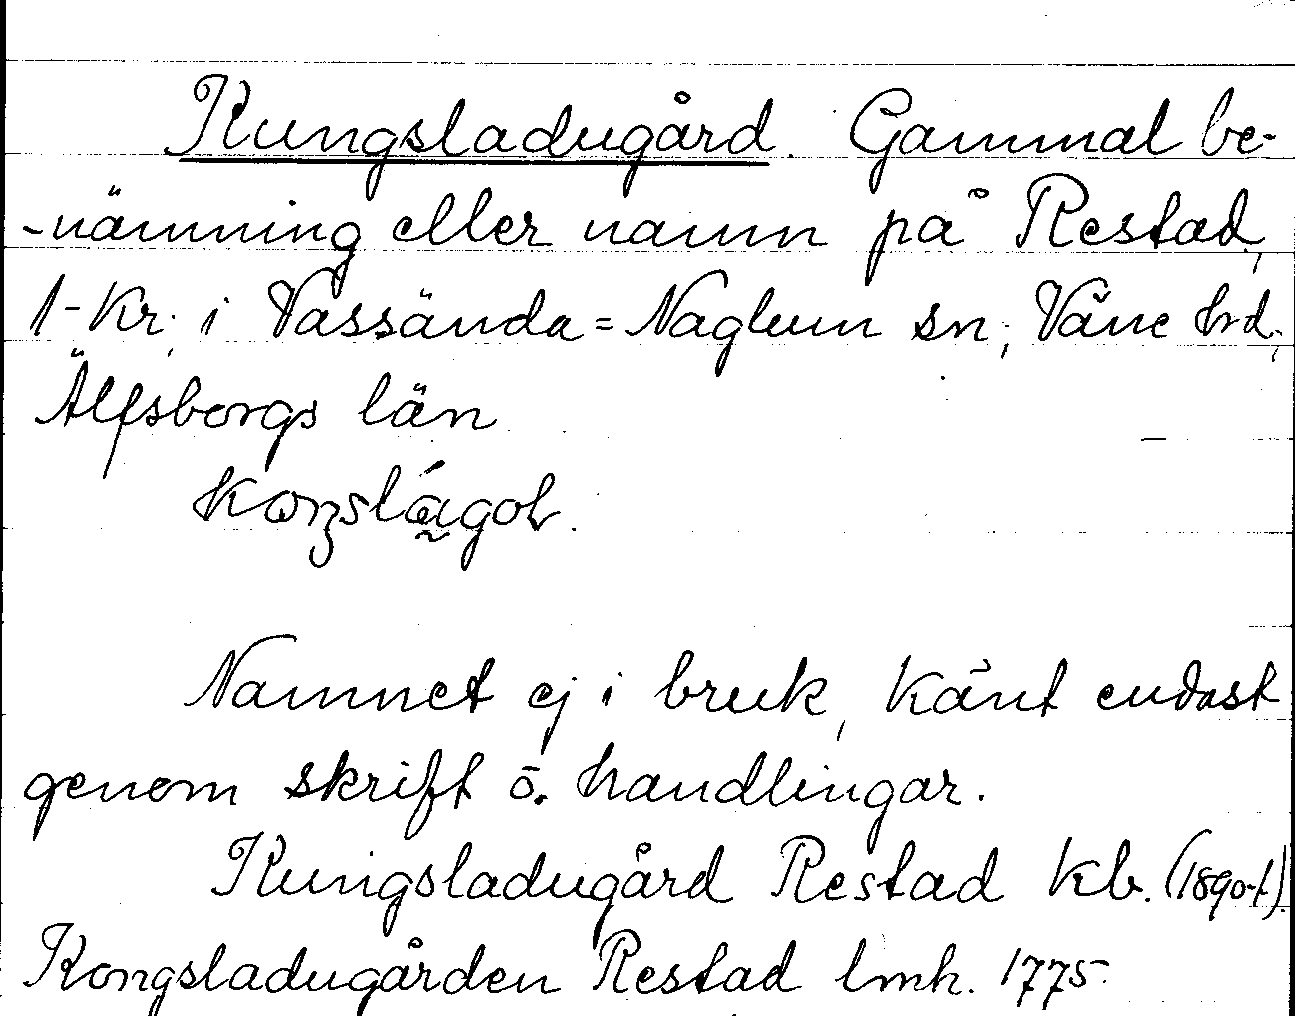 Kungsladugård. Gammal be-
-nämning eller namn på Restad,
1-Kr. i Vassända=Naglum sn, Väne hrd,
Älfsborgs län
Namnet ej i bruk, känt endast
genom skrift o. handlingar.
Kungsladugård Restad kb. (1890-t).
Kongsladugården Restad lmh. 1775.